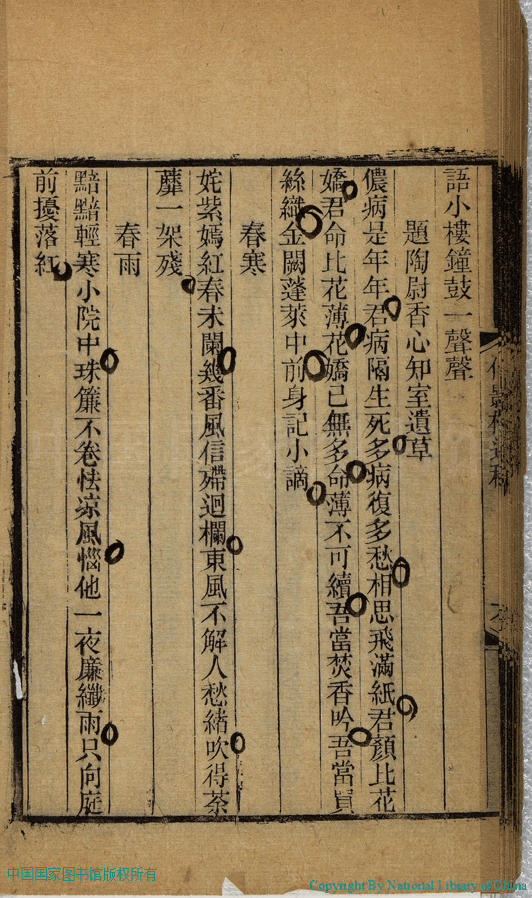 語小樓鐘鼓一聲聲
題陶尉香心知室遺草
儂病是年年君病隔生死多病復多愁相思飛滿紙君顏比花
嬌君命比花薄花嬌已無多命薄不可續吾當焚香吟吾當買
絲繡金闕蓬萊中前身記小謫
春寒
姹紫嫣紅春未闌幾番風信殢迴欄東風不解人愁緒吹得荼
蘼一架殘
春雨
黯黯輕寒小院中珠簾不卷怯凉風惱他一夜廉纖雨只向庭
前擾落紅
中国国家图书馆版权所有
Copyright By National Library of China